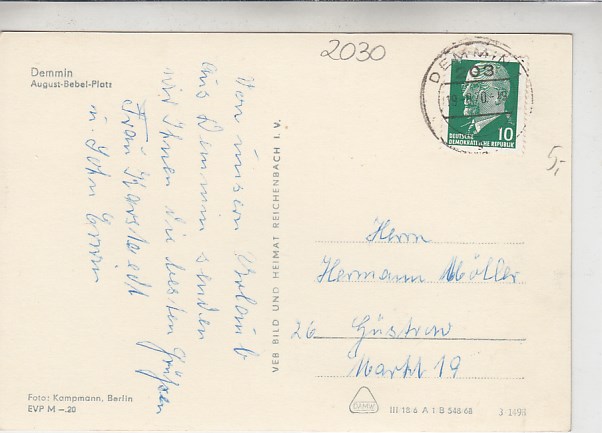 2030
Demmin
August-Bebel-Platz
Von unserm Urlaub
aus Demmin senden
wir Ihnen die besten Grüßen
Frau Karsted
u. Sohn Erwin
VEB BILD UND HEIMAT REICHENBACH I. V.
DEMMIN
203
DEUTSCHE
DEMOKRATISCHE REPUBLIK
10
5,-
Herrn
Hermann Möller
26 Güstrow
Markt 19
Foto: Kampmann, Berlin
EVP M –.20
III 18 6 A 1 B 548/68
3 1498